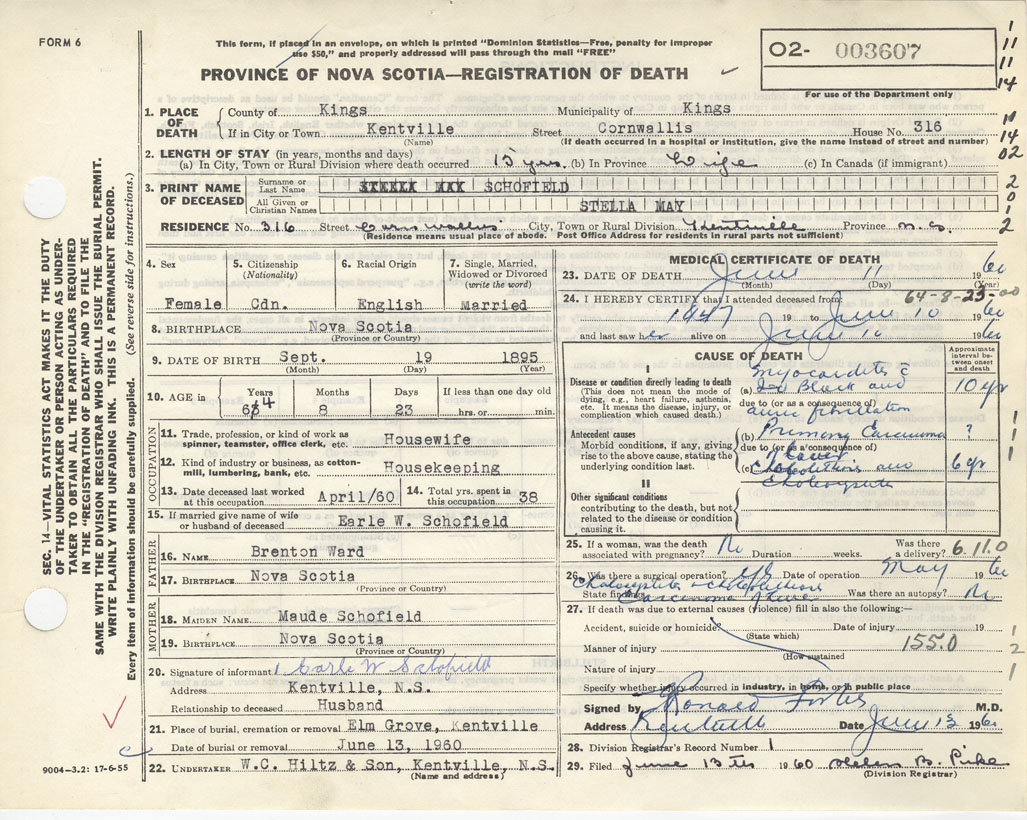 FORM 6
This form, if placed in an envelope, on which is printed "Dominion Statistics—Free, penalty for improper
use $50," and properly addressed will pass through the mail "FREE"
O2- 003607
For use of the Department only
PROVINCE OF NOVA SCOTIA—REGISTRATION OF DEATH
1
11
11
14
14
02
2
0
1
2
1. PLACE OF DEATH County of Kings Municipality of Kings
If in City or Town Kentville Street Cornwallis House No. 316
(Name) (If death occurred in a hospital or institution, give the name instead of street and number)
2. LENGTH OF STAY (in years, months and days)
(a) In City, Town or Rural Division where death occurred 15 yrs. (b) In Province Life (c) In Canada (if immigrant)
3. PRINT NAME OF DECEASED Surname or Last Name STELLA MAY SCHOFIELD
All Given or Christian Names STELLA MAY
RESIDENCE No. 316 Street Cornwallis City, Town or Rural Division Kentville Province N.S.
(Residence means usual place of abode. Post Office Address for residents in rural parts not sufficient)
SEC. 14—VITAL STATISTICS ACT MAKES IT THE DUTY
OF THE UNDERTAKER OR PERSON ACTING AS UNDER-
TAKER TO OBTAIN ALL THE PARTICULARS REQUIRED
IN THE "REGISTRATION OF DEATH" AND TO FILE THE
SAME WITH THE DIVISION REGISTRAR WHO SHALL ISSUE THE BURIAL PERMIT.
WRITE PLAINLY WITH UNFADING INK. THIS IS A PERMANENT RECORD.
Every item of information should be carefully supplied. (See reverse side for instructions.)
4. Sex 5. Citizenship (Nationality) 6. Racial Origin 7. Single, Married, Widowed or Divorced (write the word)
Female Cdn. English Married
8. BIRTHPLACE Nova Scotia
(Province or Country)
9. DATE OF BIRTH Sept. 19 1895
(Month) (Day) (Year)
10. AGE in Years Months Days If less than one day old
64 8 23 hrs. or min.
OCCUPATION
11. Trade, profession, or kind of work as spinner, teamster, office clerk, etc. Housewife
12. Kind of industry or business, as cotton-mill, lumbering, bank, etc. Housekeeping
13. Date deceased last worked at this occupation April/60 14. Total yrs. spent in this occupation 38
15. If married give name of wife or husband of deceased Earle W. Schofield
FATHER
16. NAME Brenton Ward
17. BIRTHPLACE Nova Scotia
(Province or Country)
MOTHER
18. MAIDEN NAME Maude Schofield
19. BIRTHPLACE Nova Scotia
(Province or Country)
20. Signature of informant Earle W Schofield
Address Kentville, N.S.
Relationship to deceased Husband
21. Place of burial, cremation or removal Elm Grove, Kentville
Date of burial or removal June 13, 1960
22. UNDERTAKER W.C. Hiltz & Son, Kentville, N.S.
(Name and address)
9004—3.2: 17-6-55
MEDICAL CERTIFICATE OF DEATH
23. DATE OF DEATH June 11 1960
(Month) (Day) (Year)
24. I HEREBY CERTIFY that I attended deceased from: 64-8-23-00
1947 19 to June 10 1960
and last saw her alive on June 10 1960
CAUSE OF DEATH Approximate interval between onset and death
I
Disease or condition directly leading to death
(This does not mean the mode of dying, e.g., heart failure, asthenia, etc. It means the disease, injury, or complication which caused death.)
(a) Myocarditis c Block and 10 yr
due to (or as a consequence of)
fibrillation
Antecedent causes
Morbid conditions, if any, giving rise to the above cause, stating the underlying condition last.
(b) Primary Carcinoma ?
due to (or as a consequence of)
(c) Cholelithiasis and 6 yr
Cholecystitis
II
Other significant conditions
contributing to the death, but not related to the disease or condition causing it.
1
1
1
25. If a woman, was the death associated with pregnancy? No Duration weeks. Was there a delivery? 6.11.0
26. Was there a surgical operation? yes Date of operation May 1960
State findings Cholecystitis & cholelithiasis Was there an autopsy? No
Carcinoma
27. If death was due to external causes (violence) fill in also the following:—
Accident, suicide or homicide? Date of injury 19
(State which)
Manner of injury 155.0
(How sustained
Nature of injury
Specify whether injury occurred in industry, in home, or in public place
1
2
1
Signed by Ronald Forbes M.D.
Address Kentville Date June 13 1960
28. Division Registrar's Record Number 1
29. Filed June 13th 1960 Helen B. Pike
(Division Registrar)